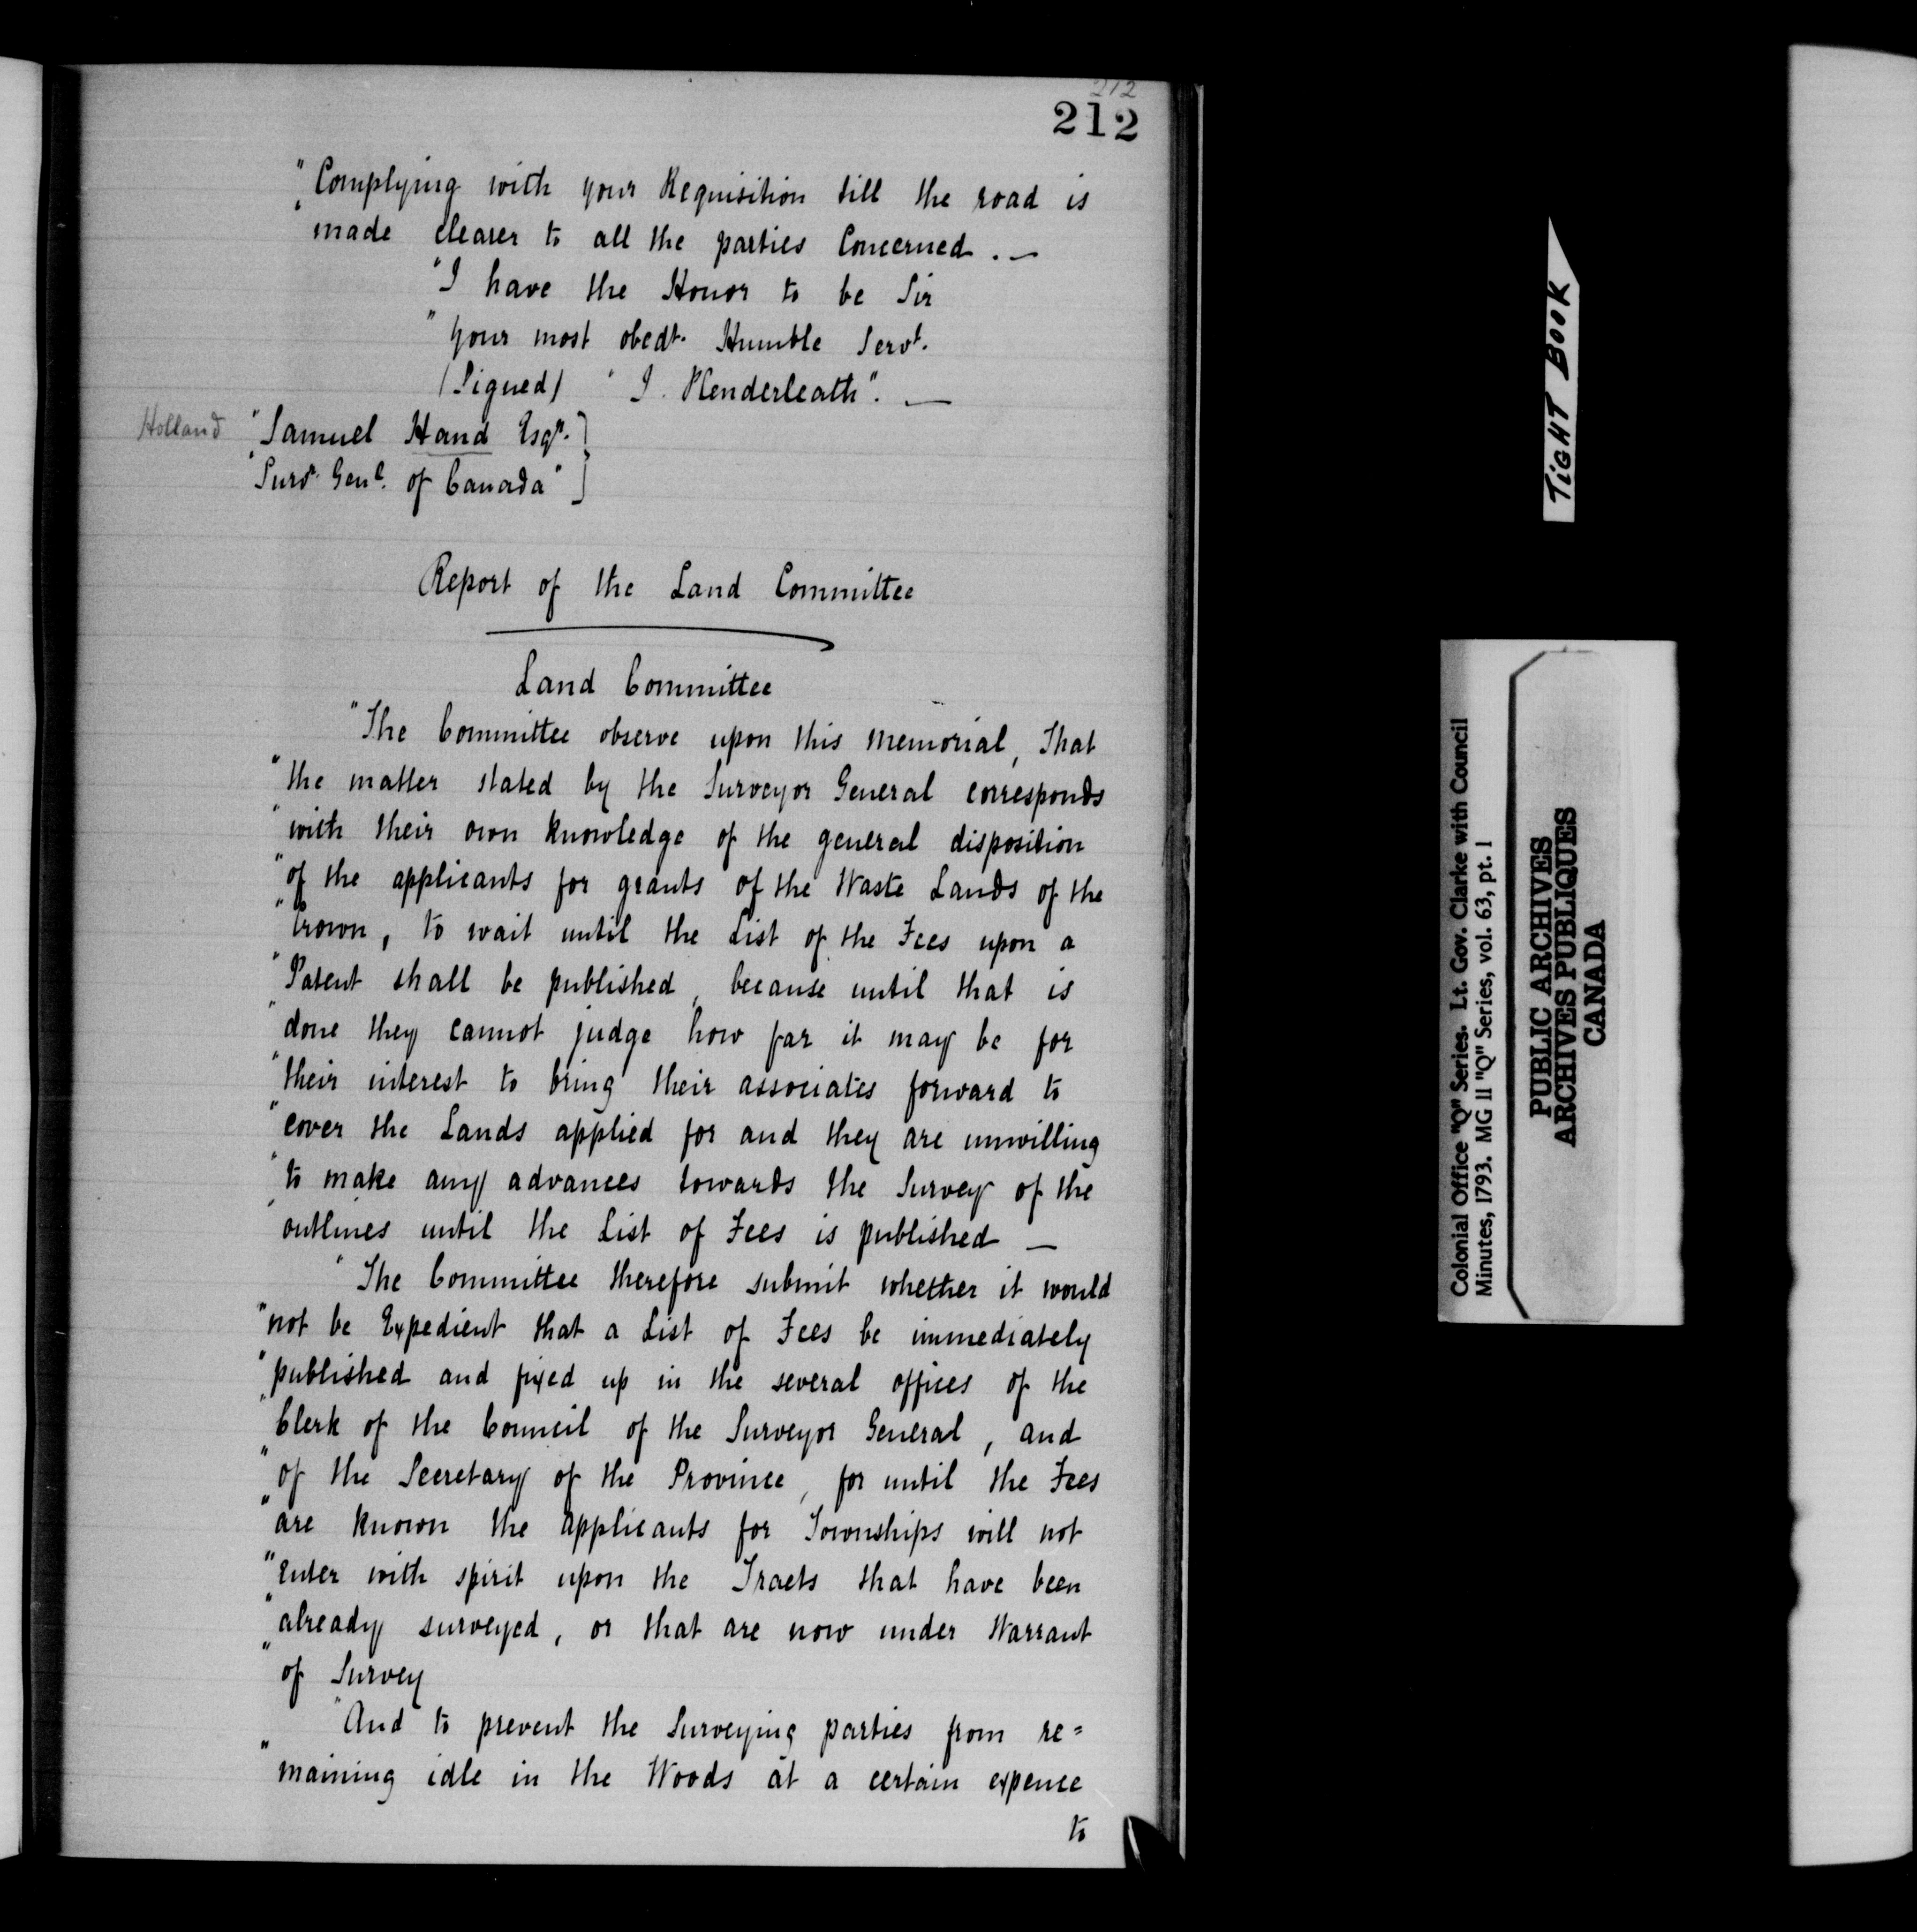 212
212
"Complying with your Requisition till the road is
"made clearer to all the parties Concerned. —
"I have the Honor to be Sir
"your most obedt. Humble Servt.
(Signed) "J. Plenderleath". —
Holland "Samuel Hand Esqr.
"Survr. Genl. of Canada"
Report of the Land Committee
Land Committee
"The Committee observe upon this Memorial, That
"the matter stated by the Surveyor General corresponds
"with their own knowledge of the general disposition
"of the applicants for grants of the Waste Lands of the
"Crown, to wait until the List of the Fees upon a
"Patent shall be published, because until that is
"done they cannot judge how far it may be for
"their interest to bring their associates forward to
"cover the Lands applied for and they are unwilling
"to make any advances towards the Survey of the
"outlines until the List of Fees is published —
"The Committee therefore submit whether it would
"not be Expedient that a List of Fees be immediately
"published and fixed up in the several offices of the
"Clerk of the Council of the Surveyor General, and
"of the Secretary of the Province, for until the Fees
"are known the applicants for Townships will not
"Enter with spirit upon the Tracts that have been
"already surveyed, or that are now under Warrant
"of Survey
"And to prevent the Surveying parties from re=
"maining idle in the Woods at a certain expence
to
TIGHT BOOK
Colonial Office "Q" Series. Lt. Gov. Clarke with Council
Minutes, 1793. MG 11 "Q" Series, vol. 63, pt. 1
PUBLIC ARCHIVES
ARCHIVES PUBLIQUES
CANADA